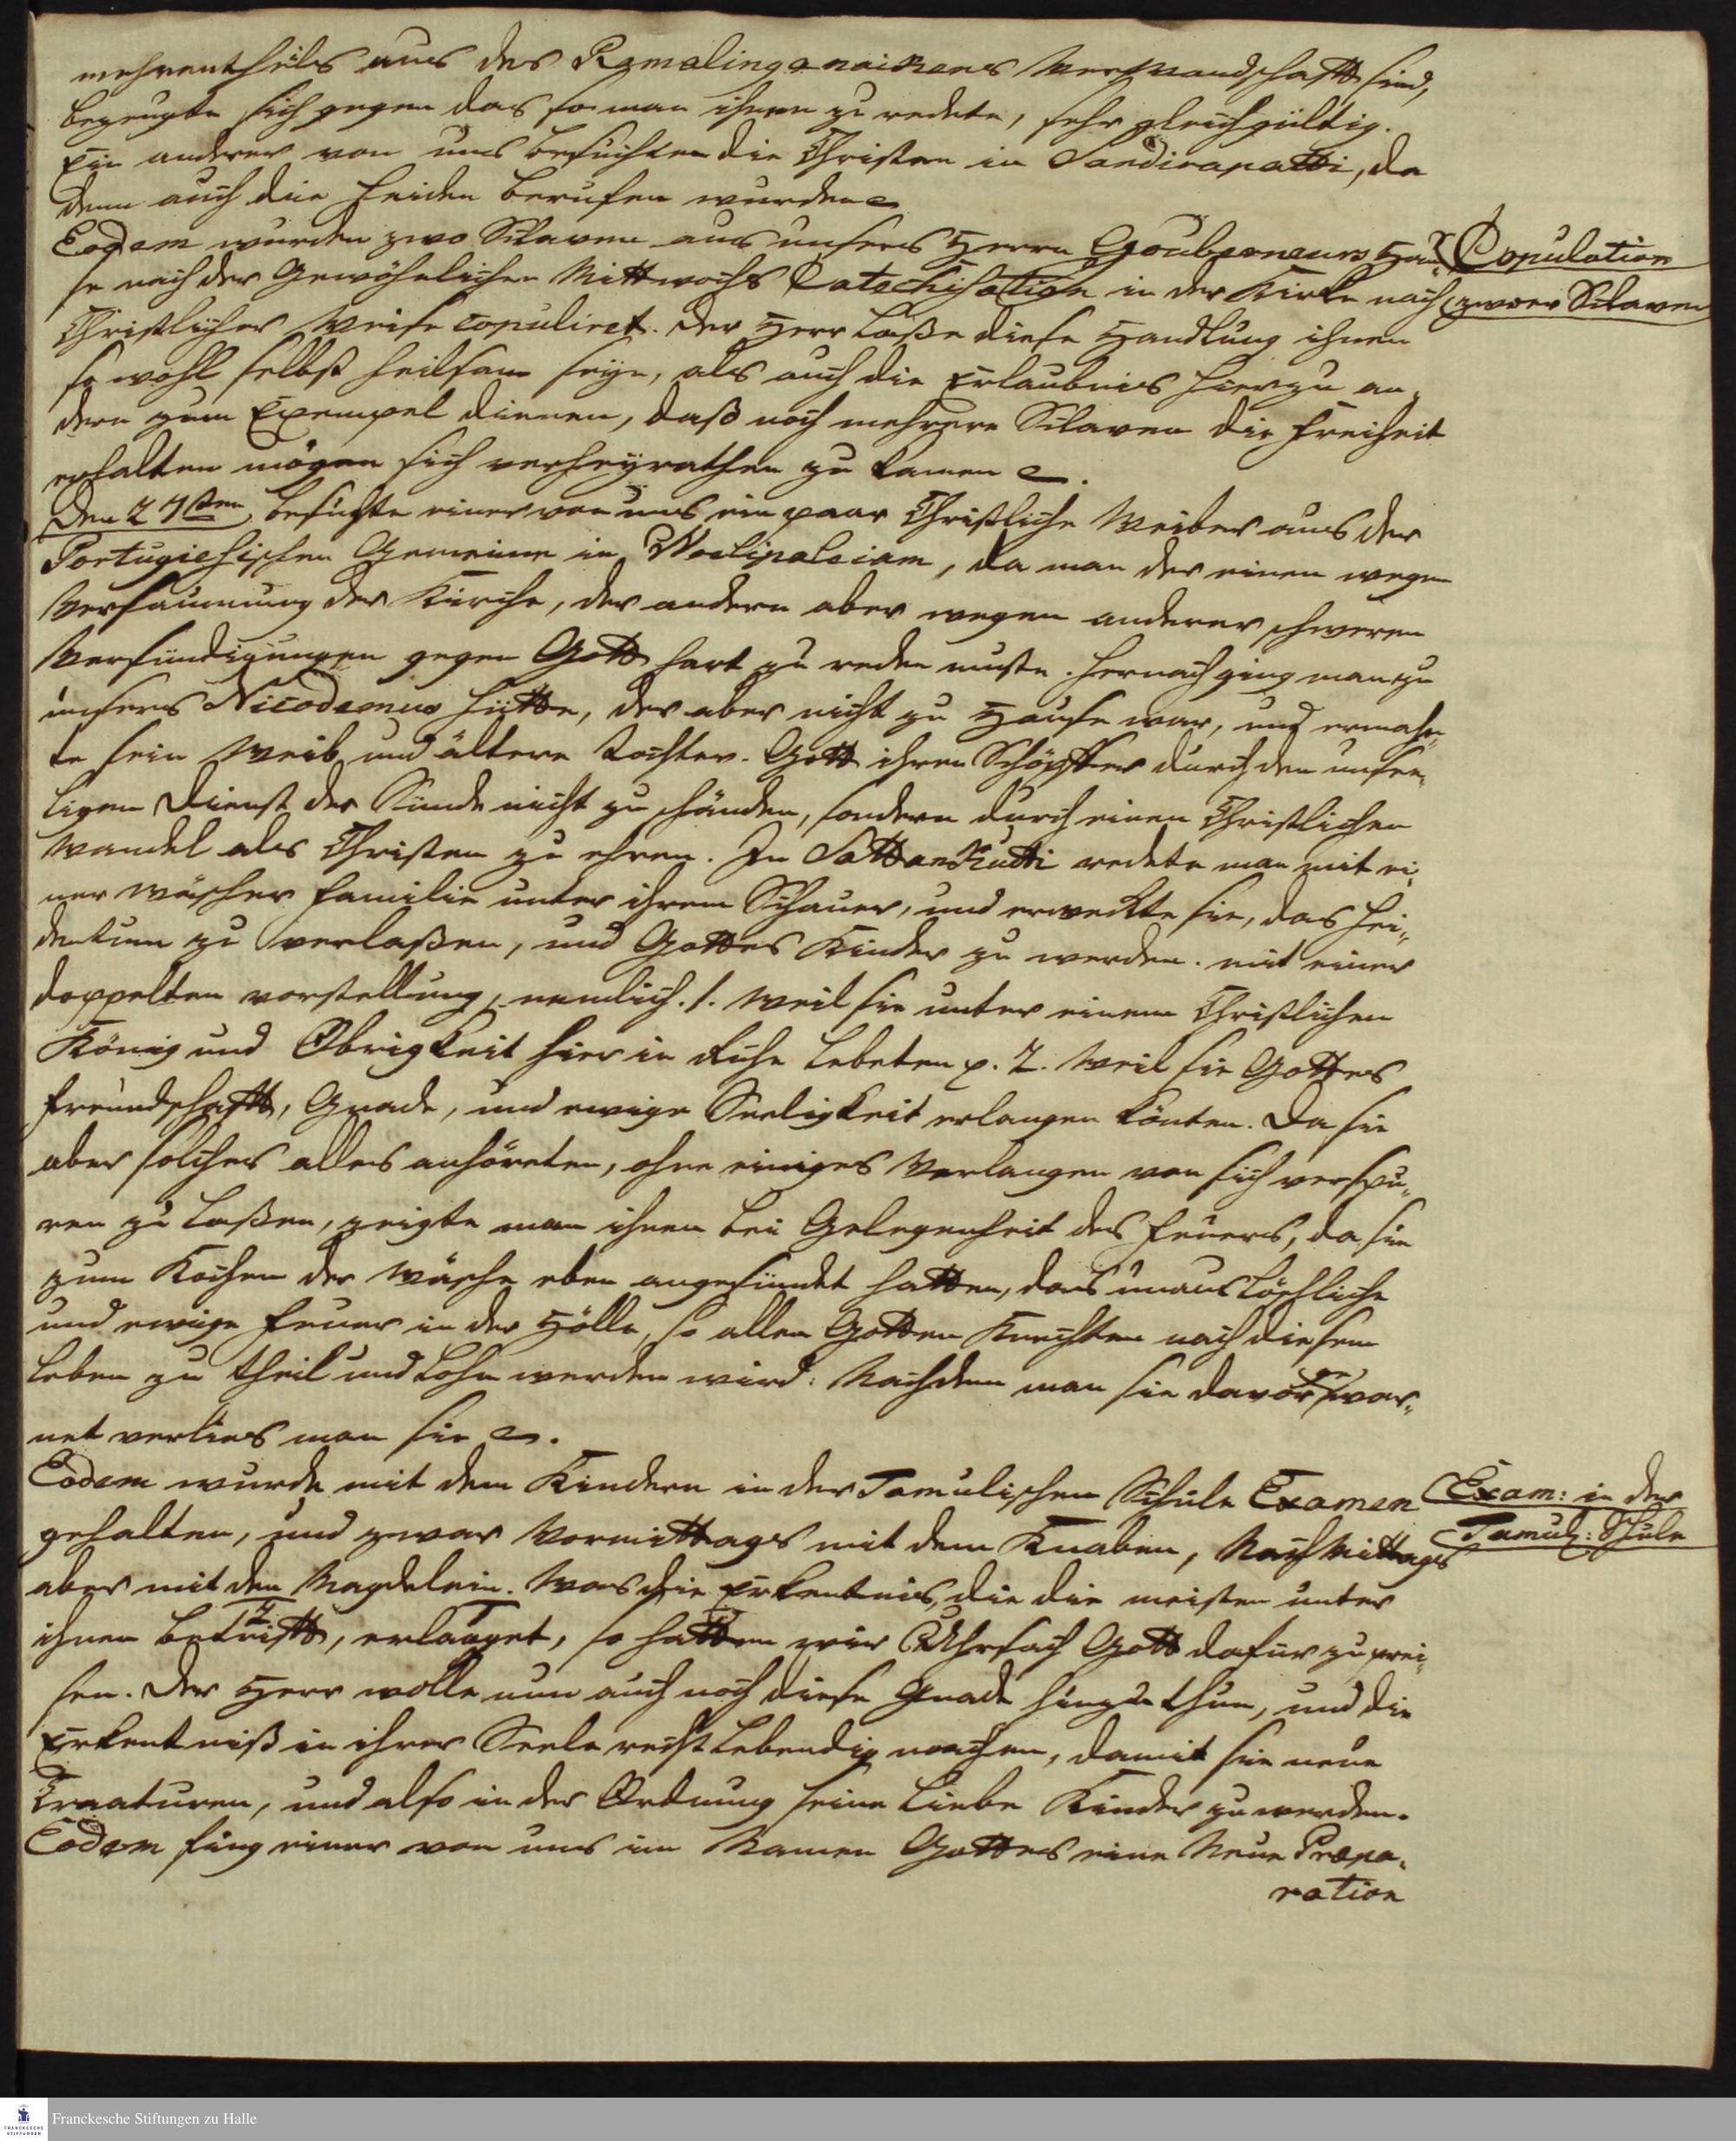 mehrentheils aus des Ramalinganaikens Verwandschafft sind,
bezeugte sich gegen das so man ihnen zu redete, sehr gleichgültig.
Ein anderer von uns besuchten die Christen in Sandirapatti, da
denn auch die Heiden berufen wurden
Eodem wurden zwo Sclaven aus unsers Herrn Gouberneurs Hau„
se nach der Gewöhnlichen Mittwochs Catechisation in der Kirke nach
Copulation
zwoer Sclaven
Christlicher Weise copuliret. Der Herr laße diese Handlung ihnen
so wohl selbst heilsam seyn, als auch die Erlaubnis hierzu an„
dern zum Exempel dienen, daß noch mehrere Sclaven die Freiheit
erhalten mögen sich verheyrathen zu können.
Den 27sten, besuchte einer von uns ein paar Christliche Weiber aus der
Portugiesischen Gemeine in Woelipaleiam, da man der einen wegen
Versäumung der Kirche, der andern aber wegen anderer schweren
Versündigungen gegen Gott hart zu reden muste. Hernach ging man zu
unsers Nicodemus Hütte, der aber nicht zu Hause war, und ermahn„
te sein Weib und ältere Tochter. Gott ihren Schöpffer durch den unsee„
ligen Dienst der Sünde nicht zu schänden, sondern durch einen Christlichen
Wandel als Christen zu ehren. In Sattankudi redete man mit ei„
ner wäscher Familie unter ihrem Schauer, und erweckte sie, das Hei„
dentum zu verlaßen, und Gottes Kinder zu werden. mit einer
doppelten vorstellung, nemlich. 1. Weil sie unter einem Christlichen
König und Obrigkeit hier in Ruhe lebeten p. 2. Weil sie Gottes
Freundschafft, Gnade, und ewige Seeligkeit erlangen könten. Da sie
aber solches alles anhöreten, ohne einiges Verlangen von sich verspü„
ren zu laßen, zeigte man ihnen bei Gelegenheit des Feuers, da sie
zum Kochen der Wäsche eben angezündet hatten, das unauslöschliche
und ewige Feuer in der Hölle, so allen Götzen Knechten nach diesem
Leben zu theil und Lohn werden wird. Nachdem man sie davor gewar„
net verlies man sie.
Eodem wurde mit dem Kindern in der Tamulischen Schule Examen
Exam: in der
Tamul: Schule
gehalten, und zwar Vormittags mit dem Knaben, Nach Mittags
aber mit den Magdelein. Was die Erkentnis, die die meisten unter
ihnen betrifft, erlanget, so hatten wir Uhrsach Gott dafür zu prei„
sen. Der Herr wolle nun auch noch diese Gnade hinzu thun, und die
Erkentniß in ihrer Seele recht lebendig machen, damit sie neue
Creaturen, und also in der Ordnung seine liebe Kinder zu werden.
Eodem fing einer von uns im Namen Gottes eine Neue Præpa„
ration
Franckesche Stiftungen zu Halle
FRANCKESCHE
STIFTUNGEN